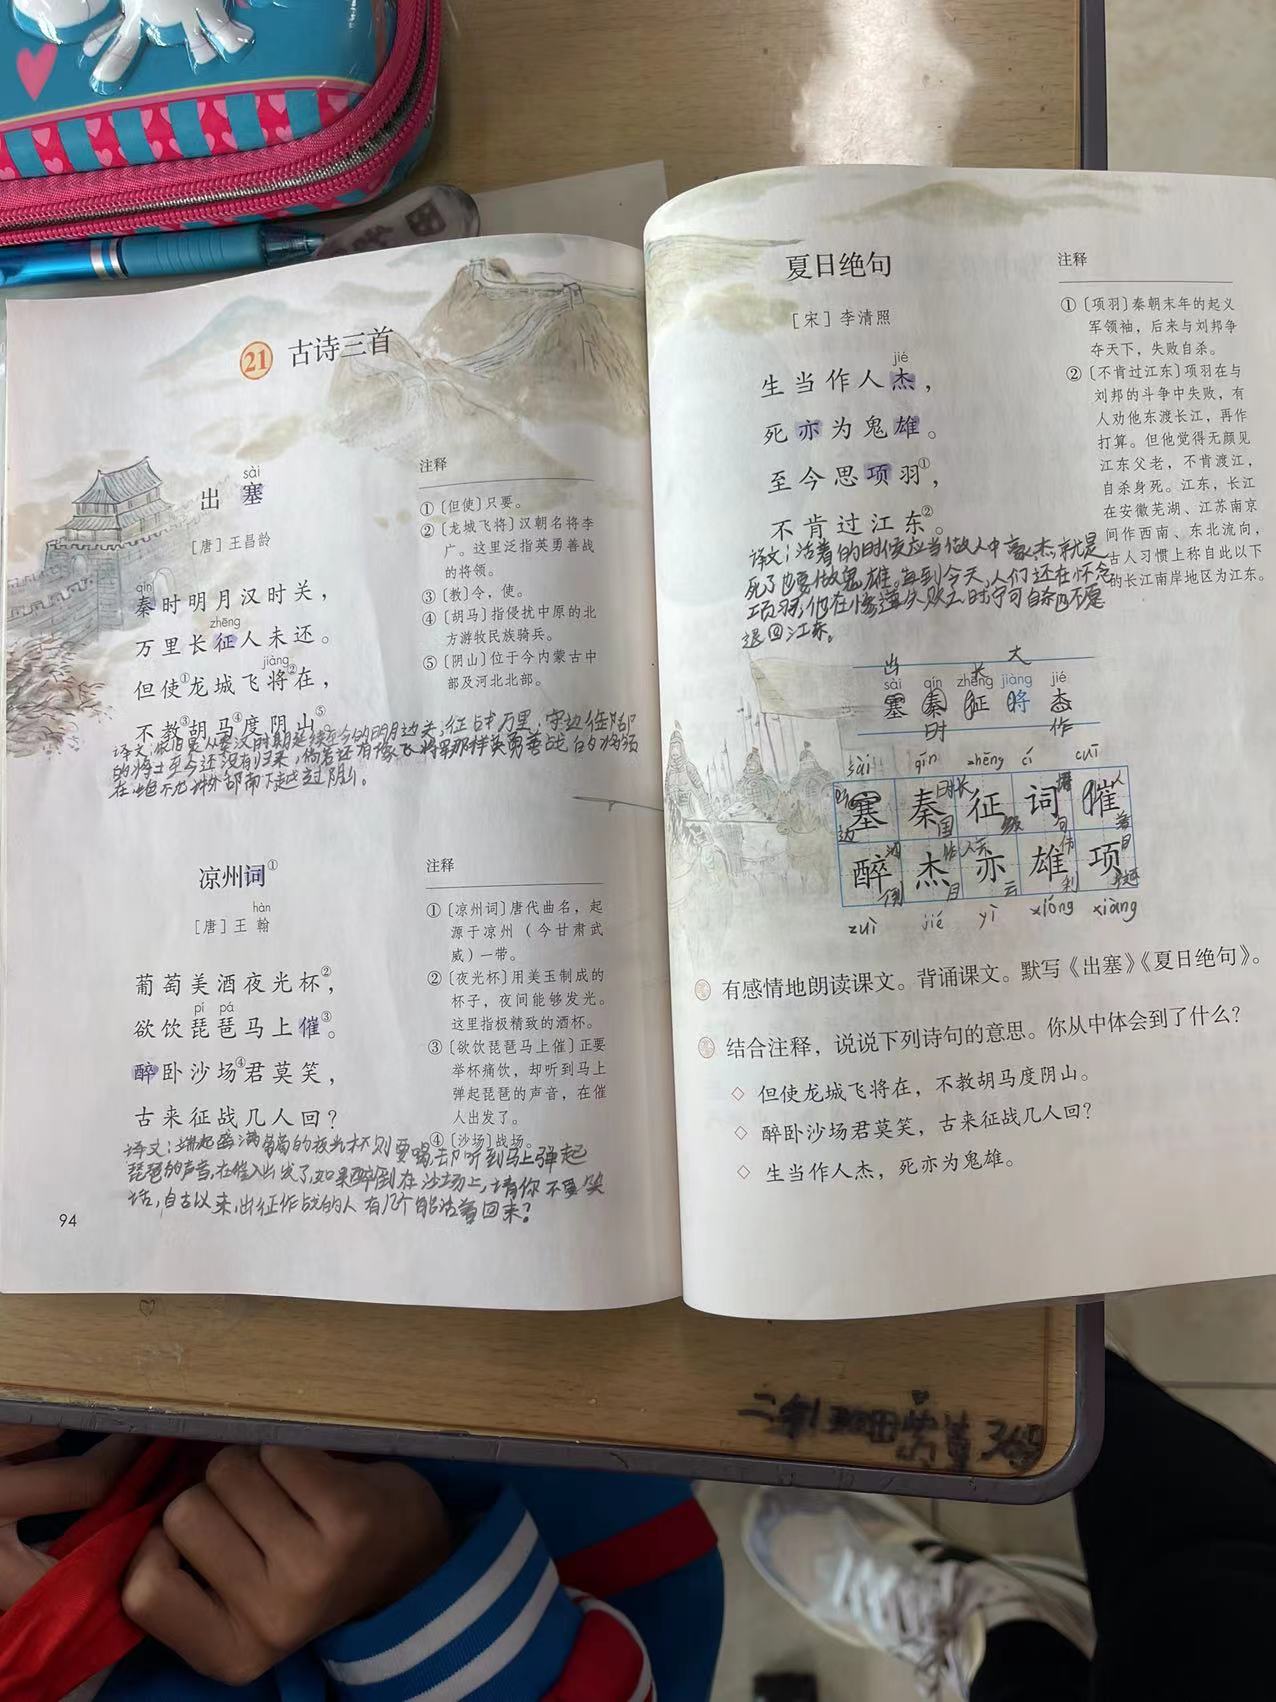 21 古诗三首
sài
出塞
[唐]王昌龄
qín
秦时明月汉时关，
zhēng
万里长征人未还。
jiàng
但使①龙城飞将②在，
不教③胡马④度阴山⑤。
注释
①〔但使〕只要。
②〔龙城飞将〕汉朝名将李
广。这里泛指英勇善战
的将领。
③〔教〕令，使。
④〔胡马〕指侵扰中原的北
方游牧民族骑兵。
⑤〔阴山〕位于今内蒙古中
部及河北北部。
的将士至今还没有归来，倘若还有像飞将军那样英勇善战的将领
凉州词①
hàn
[唐]王翰
葡萄美酒夜光杯②，
pí pá
欲饮琵琶马上催③。
醉卧沙场④君莫笑，
古来征战几人回？
注释
①〔凉州词〕唐代曲名，起
源于凉州（今甘肃武
威）一带。
②〔夜光杯〕用美玉制成的
杯子，夜间能够发光。
这里指极精致的酒杯。
③〔欲饮琵琶马上催〕正要
举杯痛饮，却听到马上
弹起琵琶的声音，在催
人出发了。
④〔沙场〕战场。
琵琶的声音，在催人出发了，如果醉倒在沙场上，请你不要笑
话，自古以来，出征作战的人有几个能活着回来？
94
夏日绝句
[宋]李清照
jié
生当作人杰，
死亦为鬼雄。
至今思项羽①，
不肯过江东②。
注释
①〔项羽〕秦朝末年的起义
军领袖，后来与刘邦争
夺天下，失败自杀。
②〔不肯过江东〕项羽在与
刘邦的斗争中失败，有
人劝他东渡长江，再作
打算。但他觉得无颜见
江东父老，不肯渡江，
自杀身死。江东，长江
在安徽芜湖、江苏南京
间作西南、东北流向，
古人习惯上称自此以下
的长江南岸地区为江东。
译文：活着的时候应当做人中豪杰，就是
死了也要做鬼雄。直到今天，人们还在怀念
项羽，他在惨遭失败之时宁可自杀也不愿
退回江东。
出 长 大
sài qín zhēng jiàng jié
塞 秦 征 将 杰
时 作
sài qín zhēng cí cuī
塞 秦 征 词 催
醉 杰 亦 雄 项
zuì jié yì xióng xiàng
有感情地朗读课文。背诵课文。默写《出塞》《夏日绝句》。
结合注释，说说下列诗句的意思。你从中体会到了什么？
◇ 但使龙城飞将在，不教胡马度阴山。
◇ 醉卧沙场君莫笑，古来征战几人回？
◇ 生当作人杰，死亦为鬼雄。